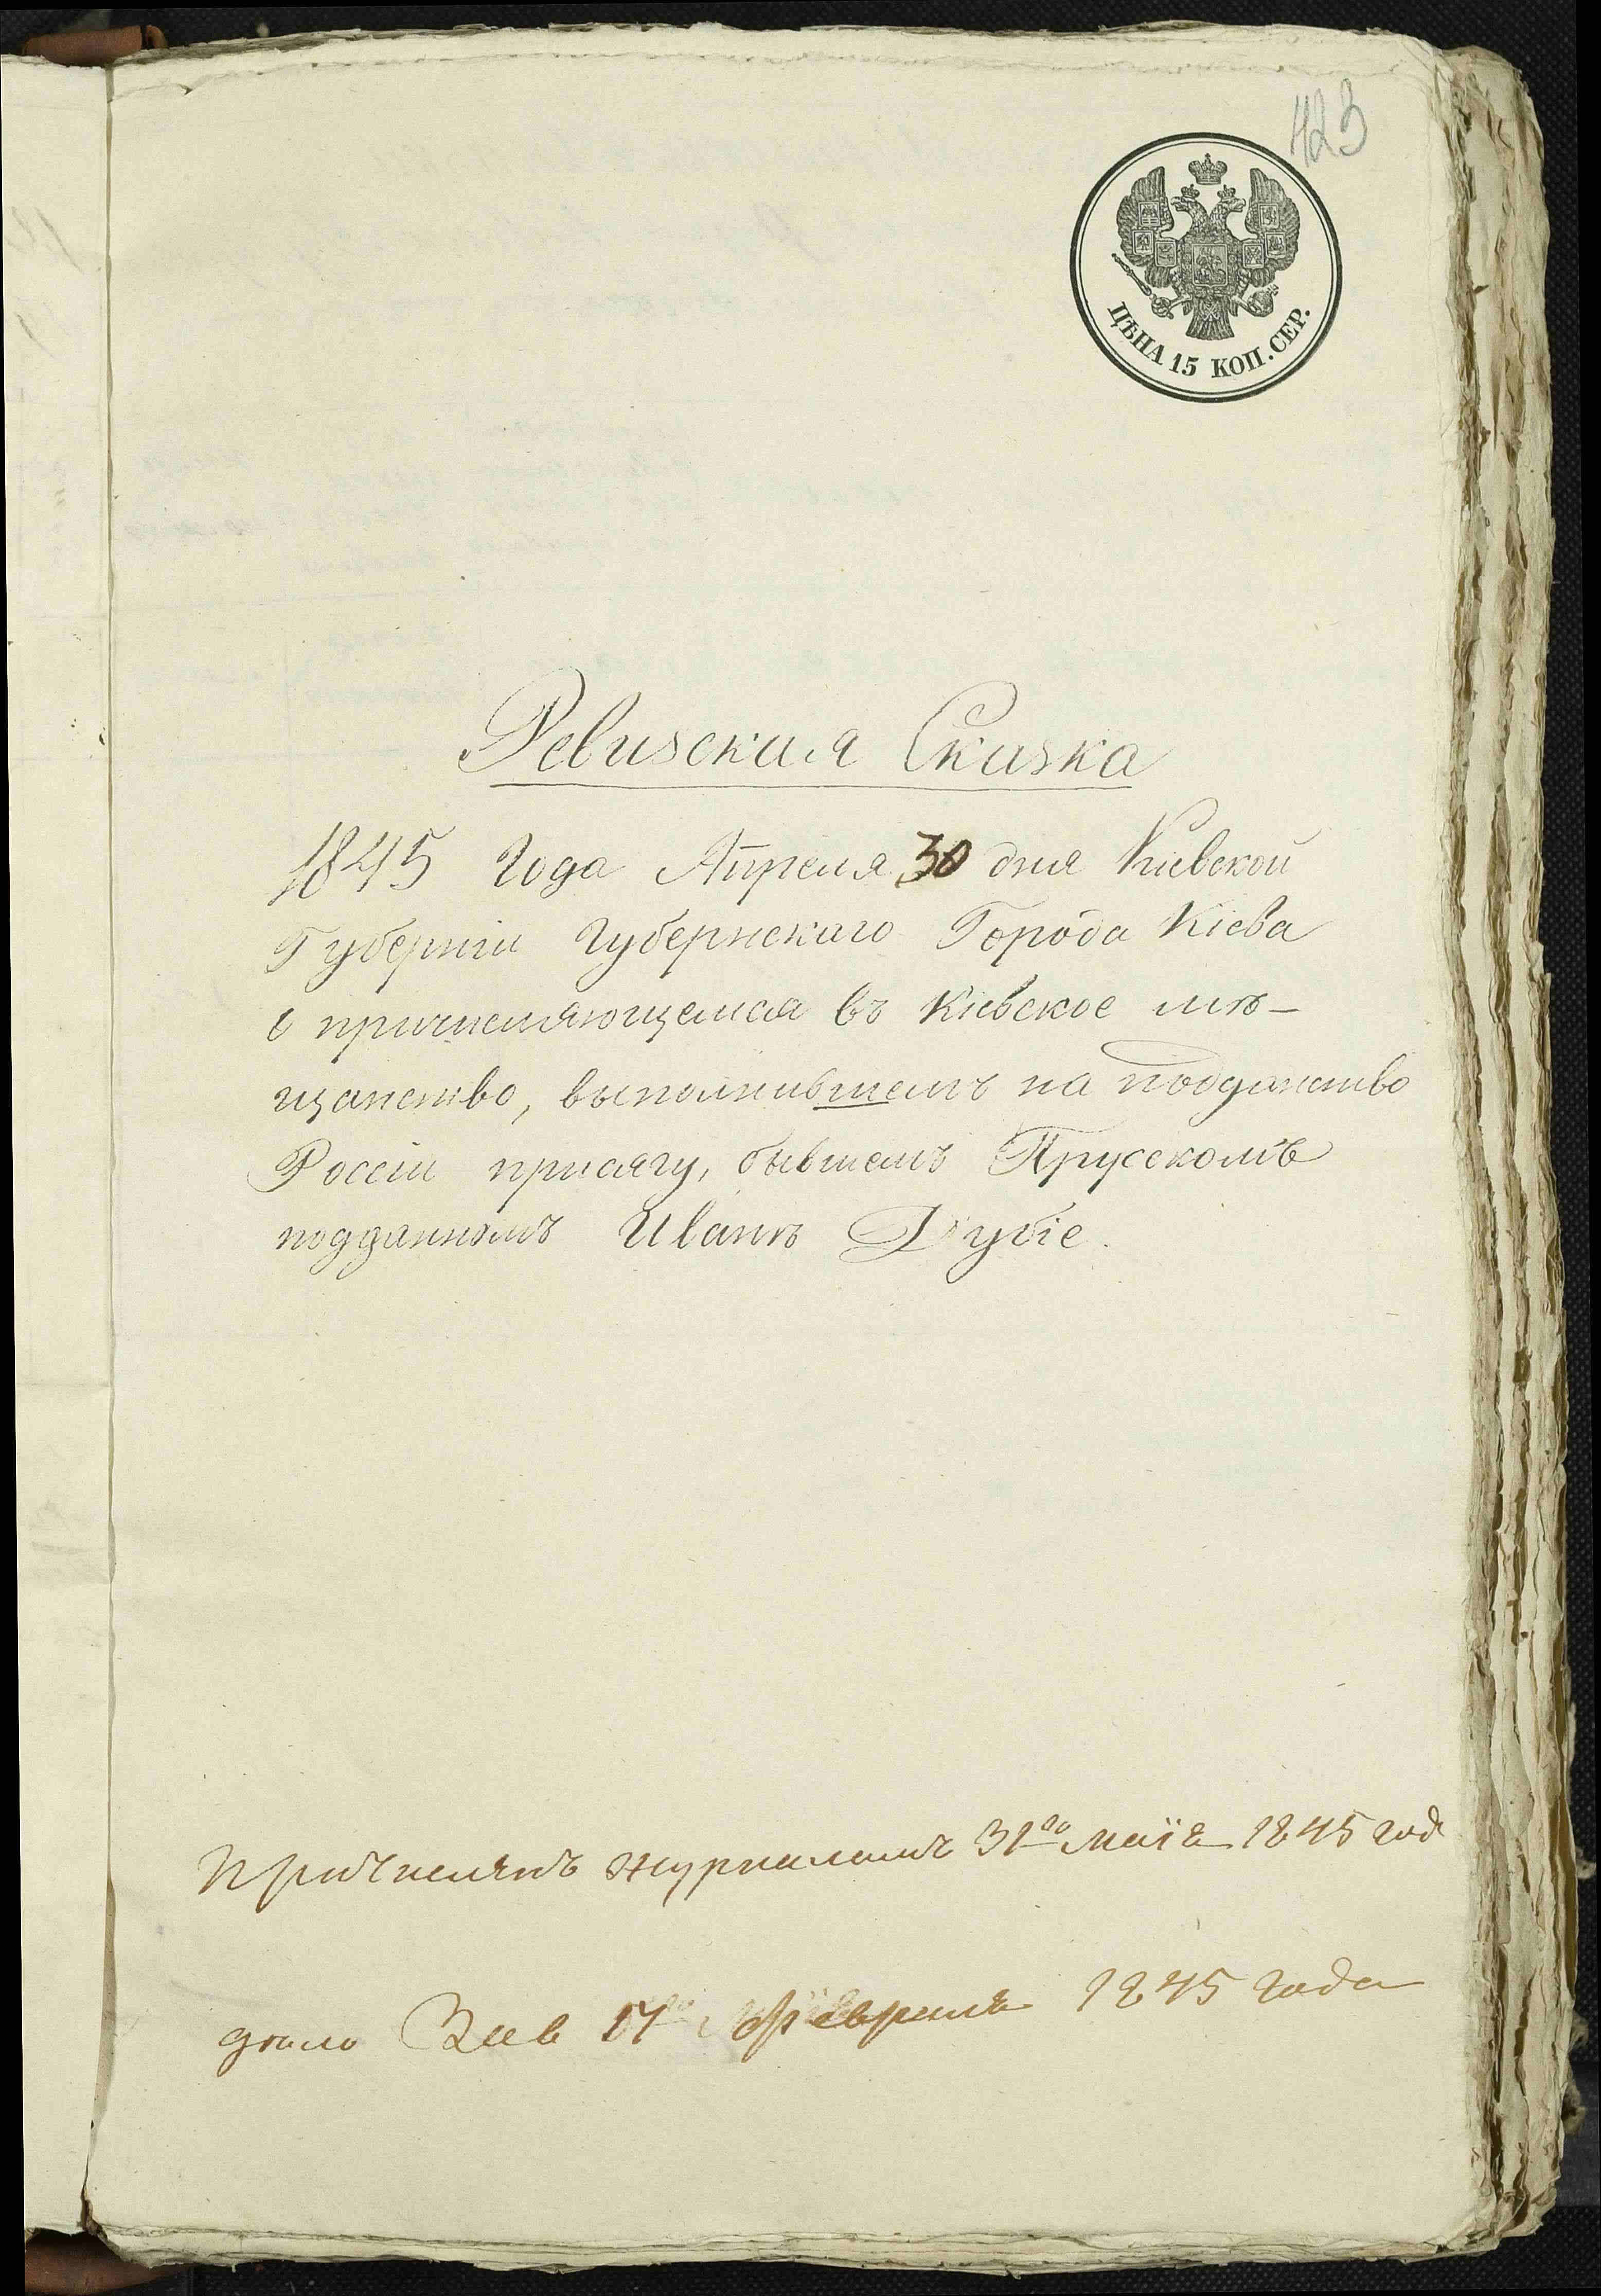 423
ЦѢНА 15 КОП. СЕР.
Ревизская Сказка
1845 Года Апреля 30 дня Кіевской
Губерніи Губернскаго Города Кіева
о причисляющемся въ Кіевское мѣ-
щанство, выполнившемъ на подданство
Россіи присягу, бывшемъ Прускомъ
подданномъ Иванѣ Дубіе.
Причисленъ журналомъ 31го маія 1845 год
дѣло Зав Февраля 1845 года